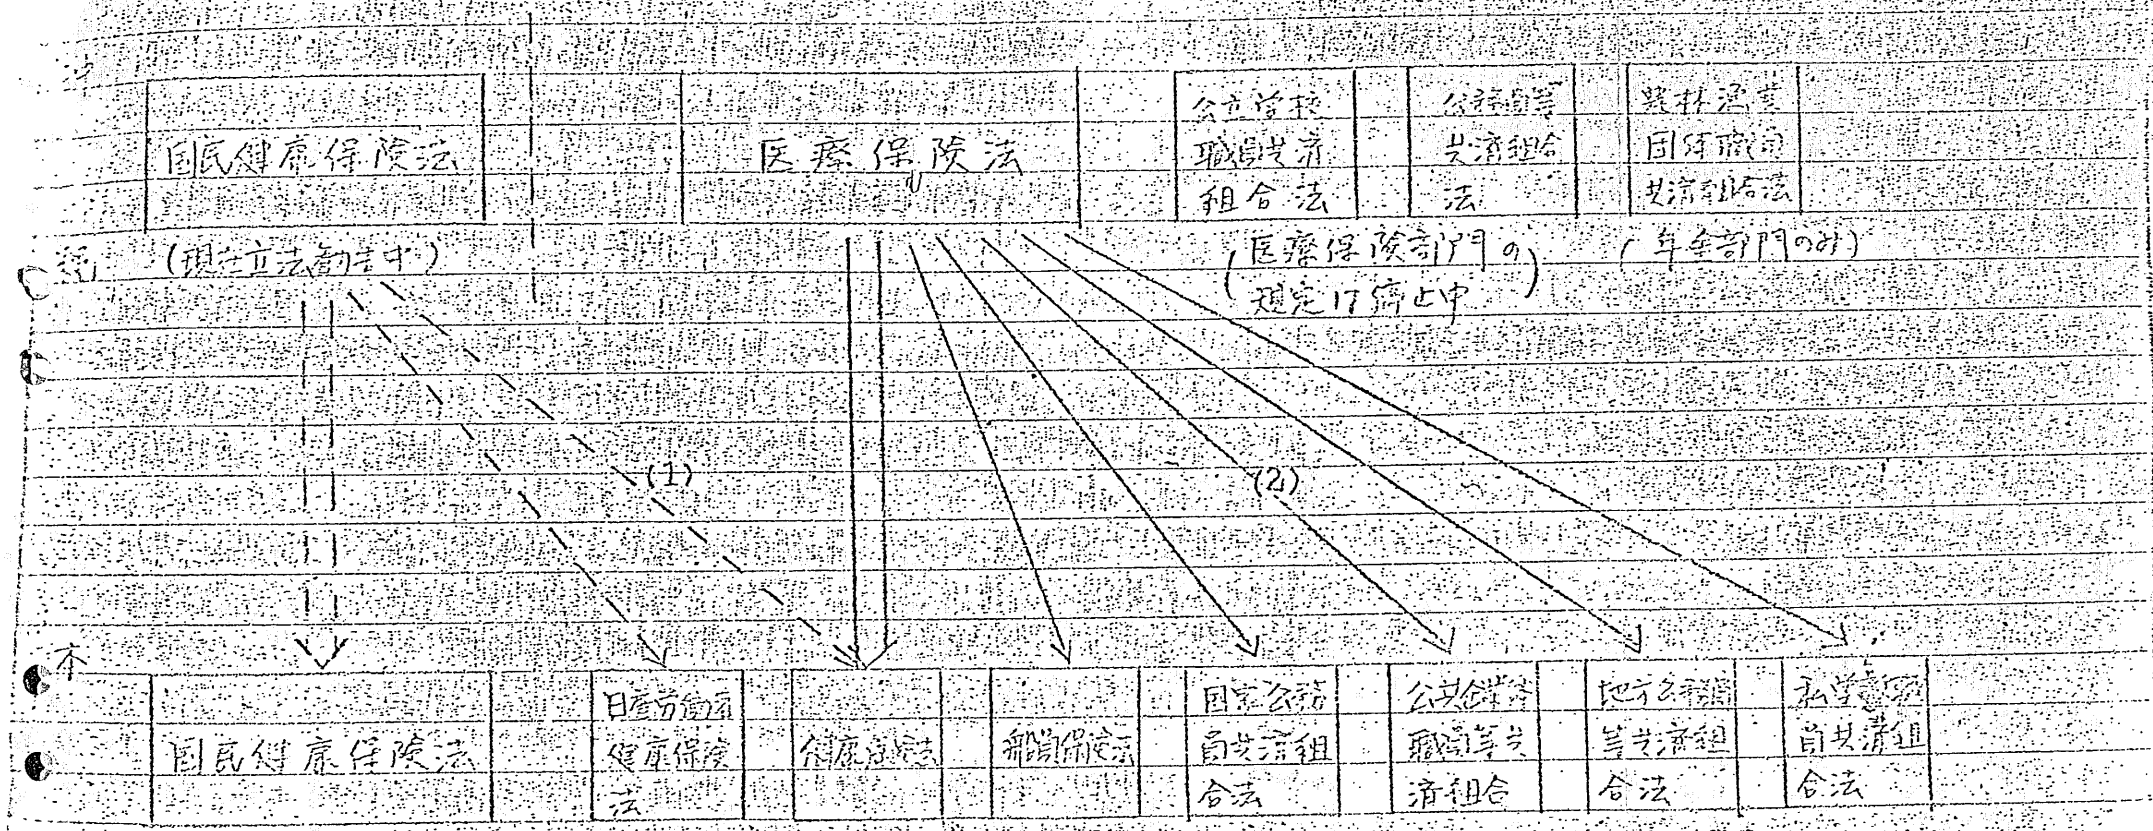 国民健康保険法
医療保険法
公立学校
職員共済
組合法
公務員等
共済組合
法
農林漁業
団体職員
共済組合法
(現在立法勧告中)
(医療保険部門の
規定は停止中)
(年金部門のみ)
(1)
(2)
本
国民健康保険法
日雇労働者
健康保険
法
健康保険法
船員保険法
国家公務
員共済組
合法
公共企業体
職員等共
済組合
地方公務員
等共済組
合法
私学教職
員共済組
合法